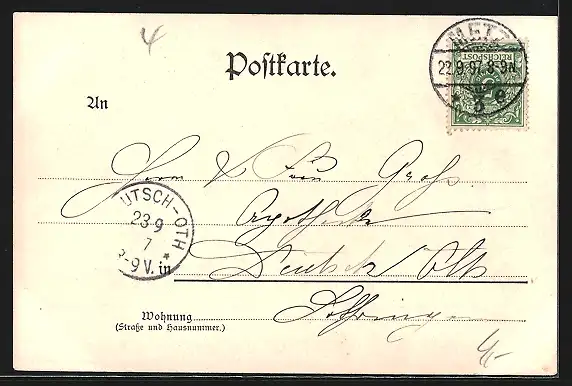 4
Postkarte.
METZ
22.9.97.8-9N
REICHSPOST
5
An
Herrn & Frau Groß
Apotheker
Deutsch Oth
Lothringen
UTSCH-OTH
23 9
7
8-9V.
in
Wohnung
(Straße und Hausnummer.)
4,-